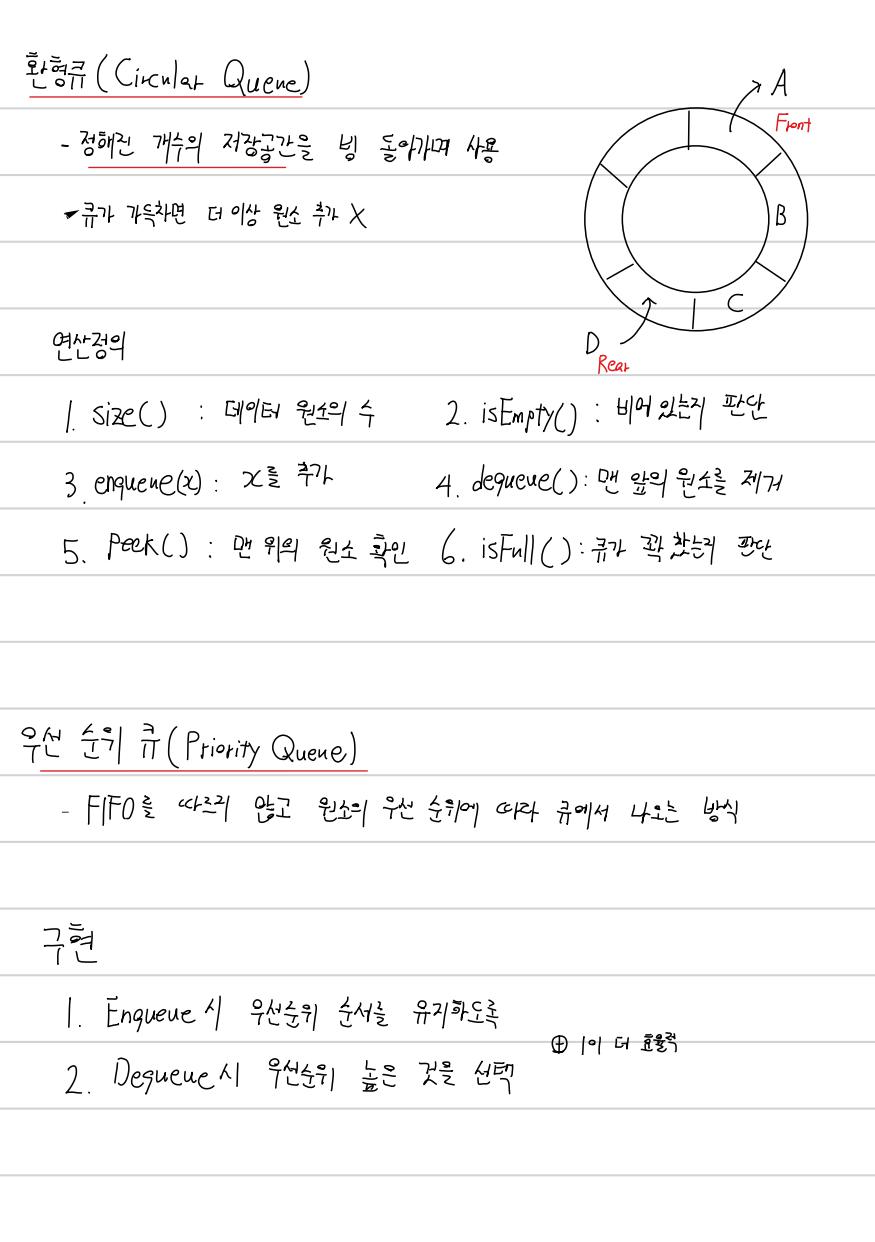 환형큐(Circular Queue)
- 정해진 개수의 저장공간을 빙 돌아가며 사용
- 큐가 가득차면 더 이상 원소 추가 X
A
Front
B
C
D
Rear
연산정의
1. size() : 데이터 원소의 수
2. isEmpty() : 비어있는지 판단
3. enqueue(x) : x를 추가
4. dequeue() : 맨 앞의 원소를 제거
5. Peek() : 맨 위의 원소 확인
6. isFull() : 큐가 꽉 찼는지 판단
우선 순위 큐(Priority Queue)
- FIFO를 따르지 않고 원소의 우선 순위에 따라 큐에서 나오는 방식
구현
1. Enqueue 시 우선순위 순서를 유지하도록
⊕ 1이 더 효율적
2. Dequeue 시 우선순위 높은 것을 선택